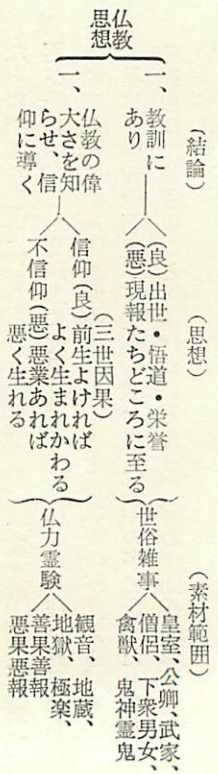 仏教
思想
(結論)
一、教訓に
あり
一、仏教の偉
大さを知
らせ、信
仰に導く
(思想)
(良)出世・悟道・栄誉
(悪)現報たちどころに至る
(三世因果)
信仰(良)前生よければ
よく生まれかわる
不信仰(悪)悪業あれば
悪く生れる
(素材範囲)
世俗雑事
皇室、公卿、武家、
僧侶、下衆男女、
禽獣、鬼神霊鬼
仏力霊験
観音、地蔵、
地獄、極楽、
善果善報
悪果悪報